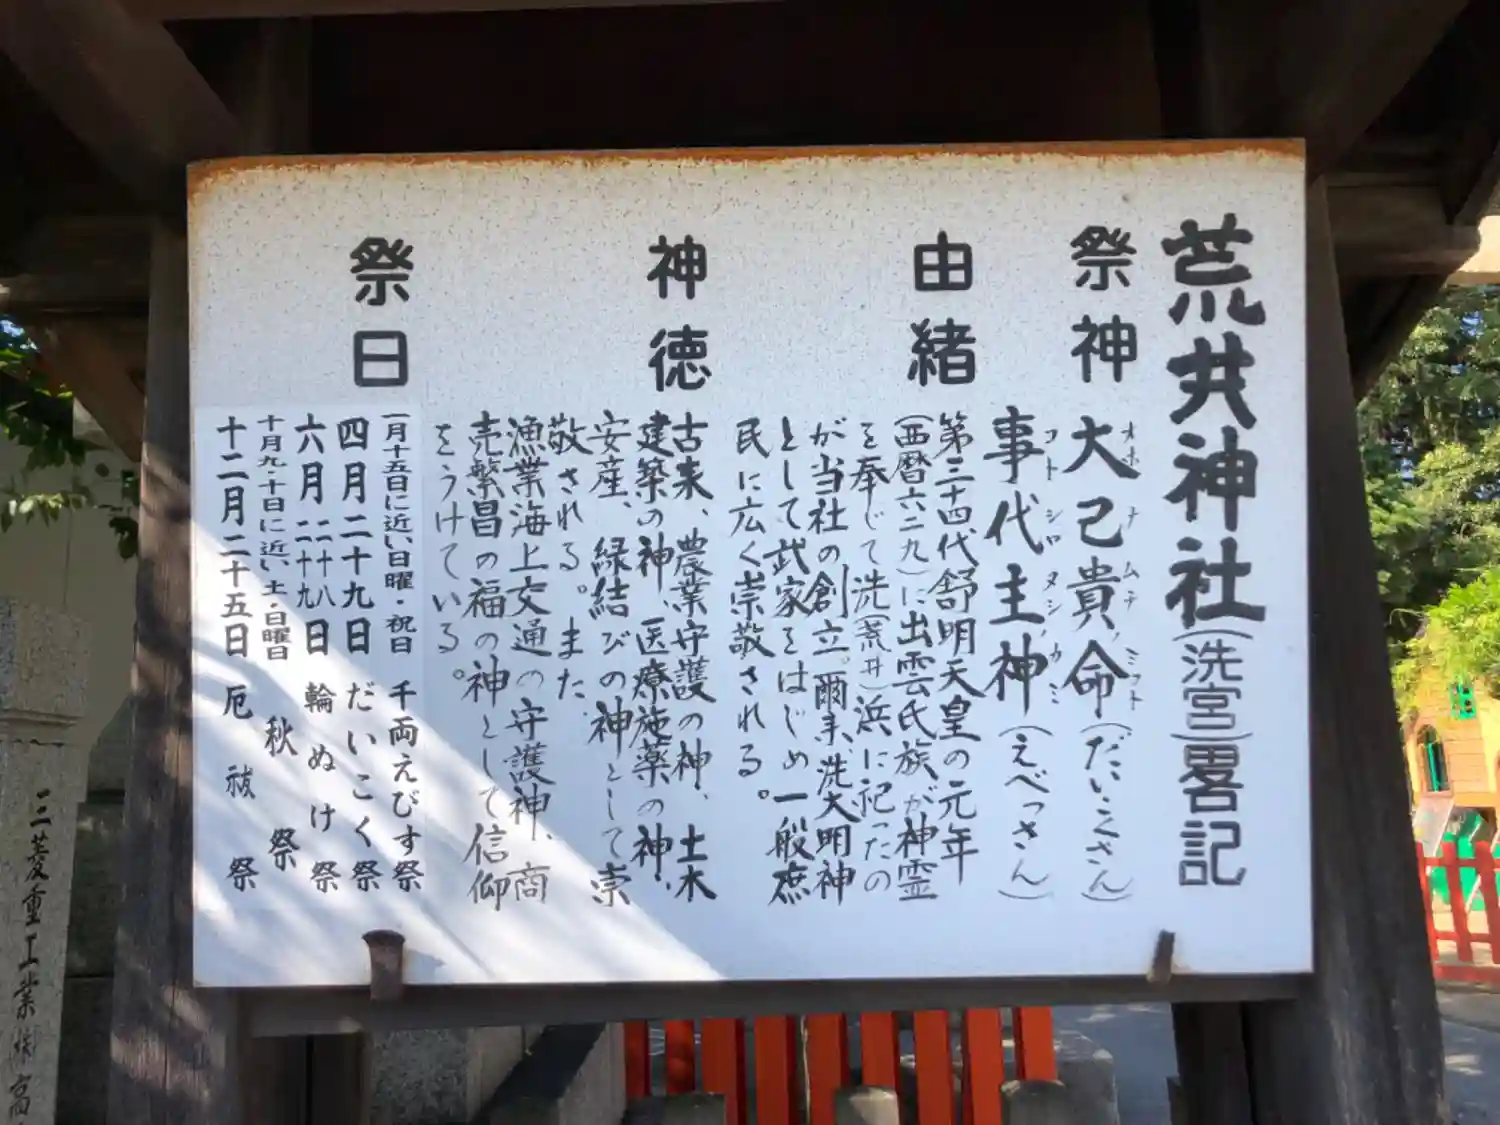 荒井神社(洗宮)畧記
祭神
大己貴命(だいこくさん)
オホナムチノミコト
事代主神(えべっさん)
コトシロヌシノカミ
由緒
第三十四代舒明天皇の元年
(西暦六二九)に出雲氏族が神霊
を奉じて洗(荒井)浜に祀ったの
が当社の創立。爾来、洗大明神
として武家をはじめ一般庶
民に広く崇敬される。
神徳
古来、農業守護の神、土木
建築の神、医療施薬の神、
安産、縁結びの神として崇
敬される。また
漁業海上交通の守護神、商
売繁昌の福の神として信仰
をうけている。
祭日
一月十五日に近い日曜・祝日 千両えびす祭
四月二十九日 だいこく祭
六月二十八二十九日 輪ぬけ祭
十月九・十日に近い土・日曜日 秋祭
十二月二十五日 厄祓祭
三菱重工業株高